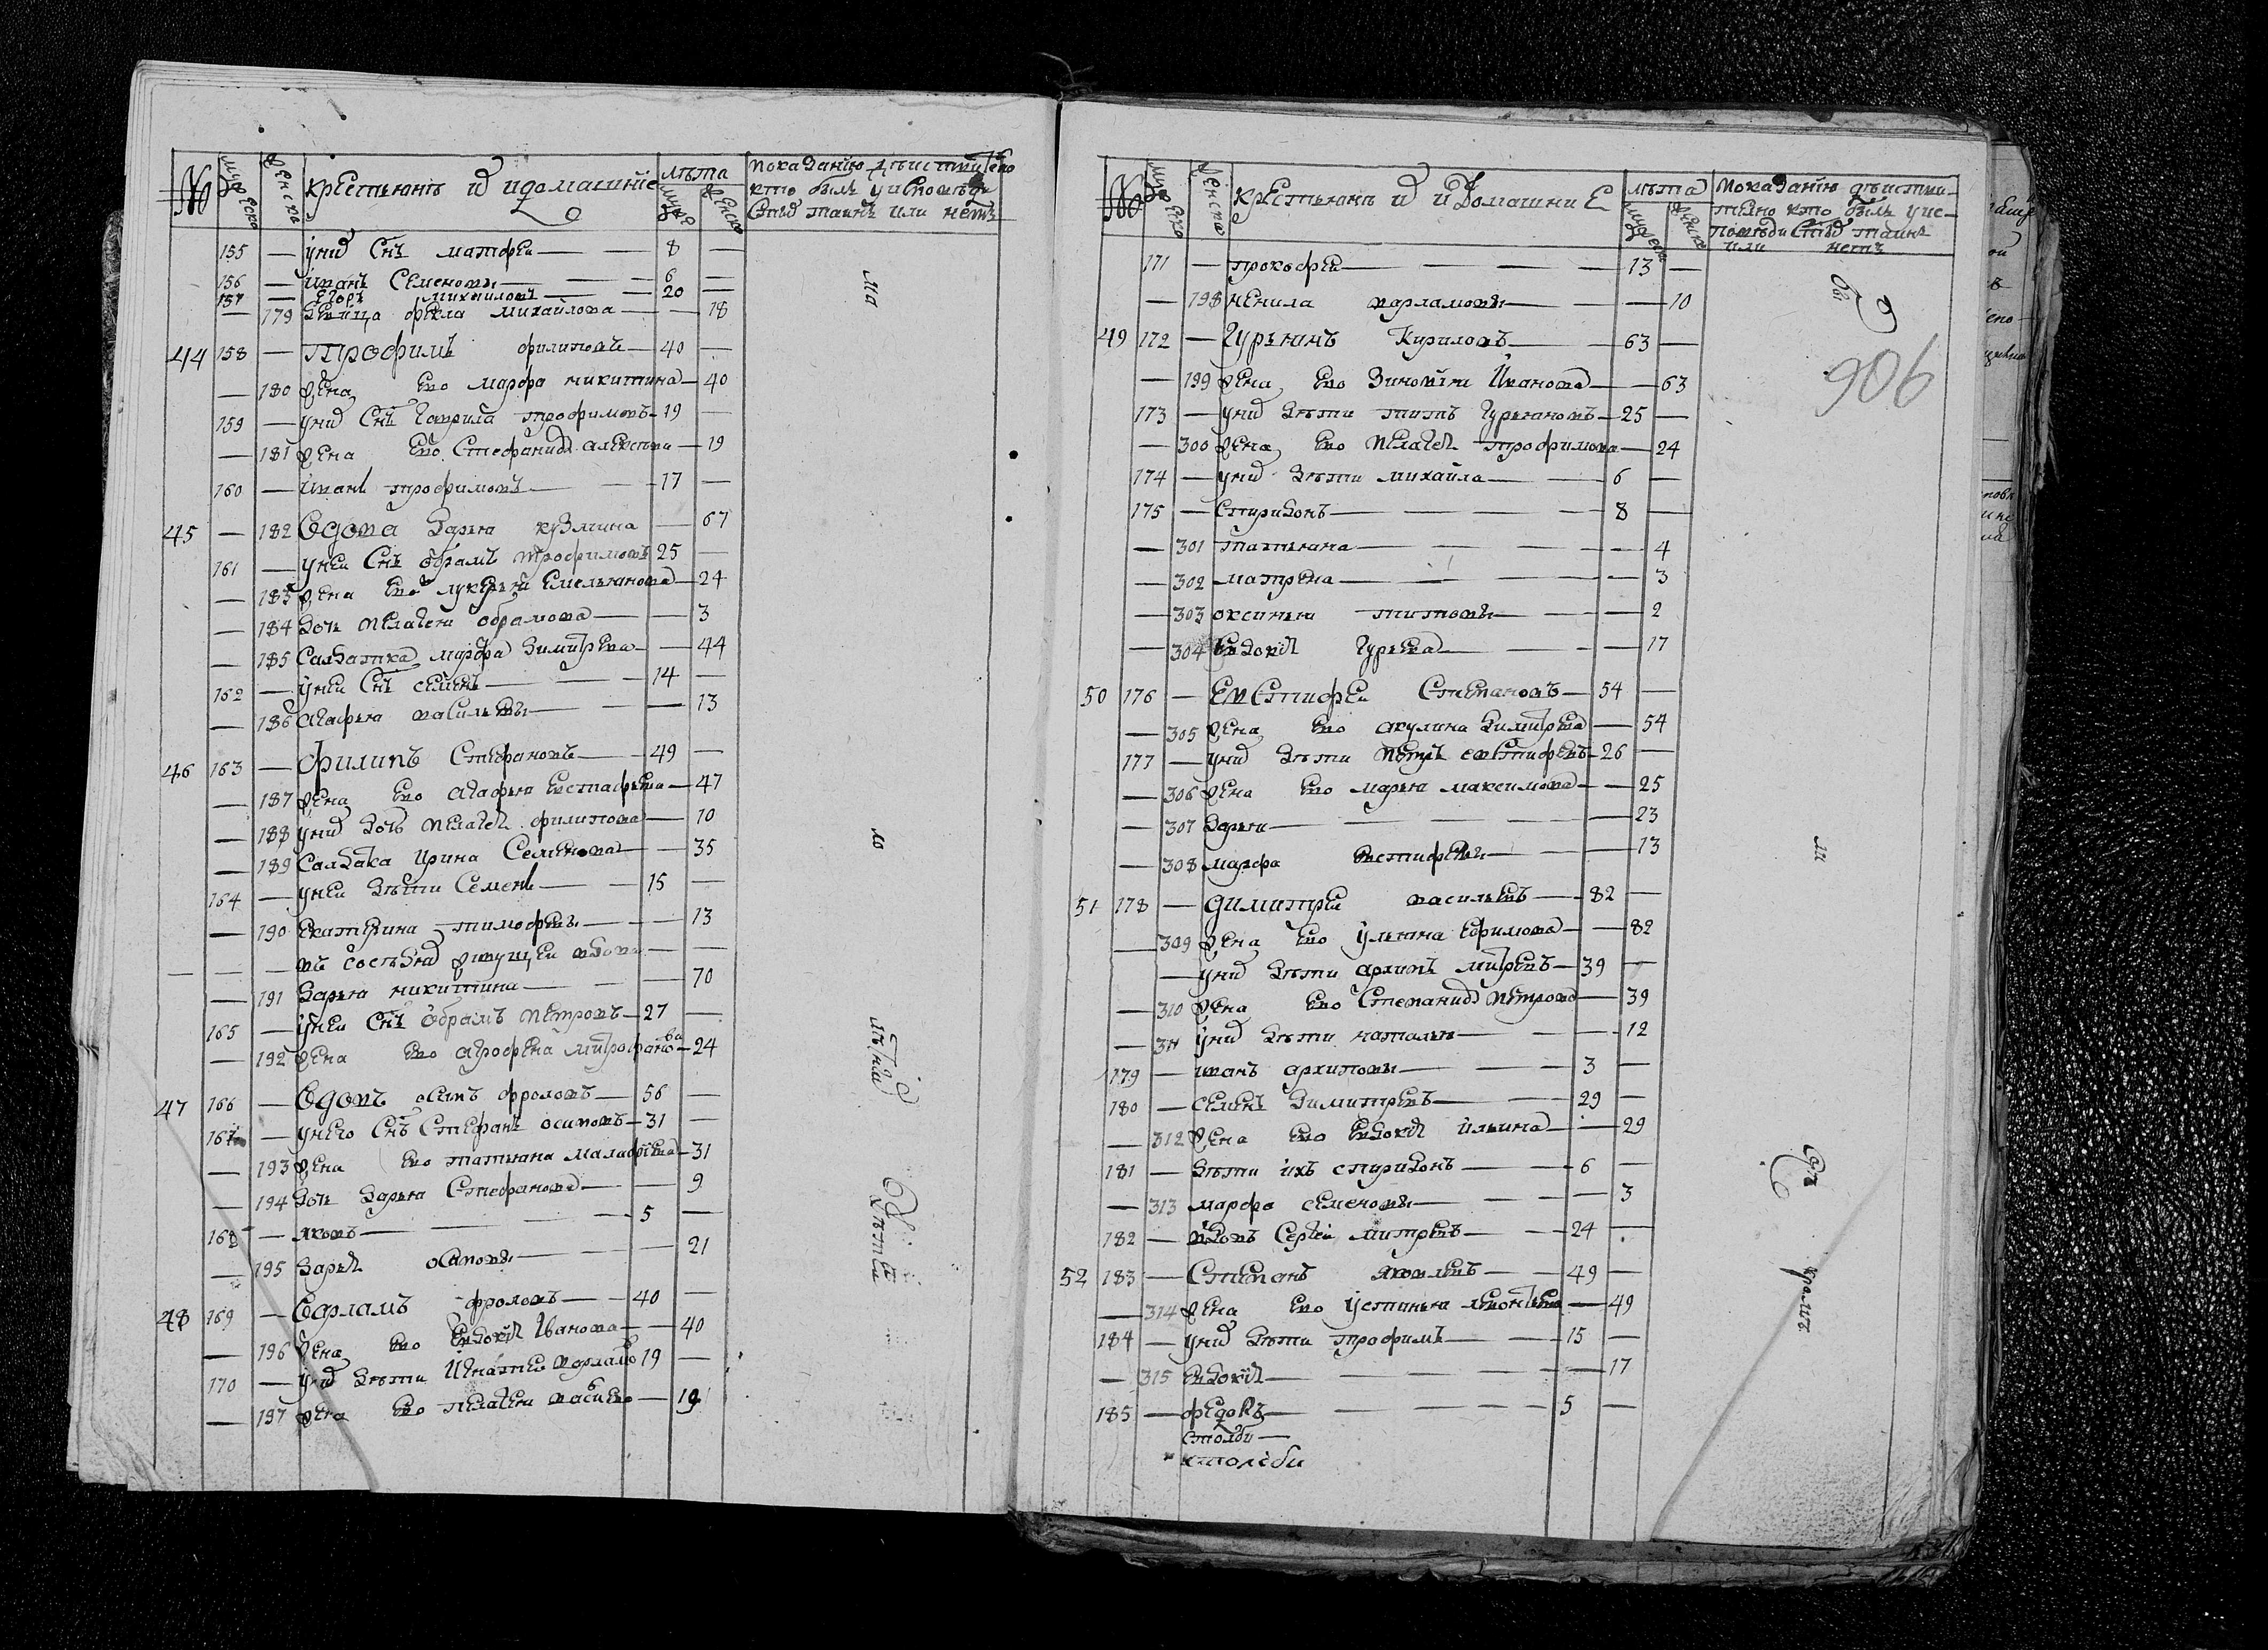 № мужеска женска крестьянъ и идомашние лѣта показанию дѣиствително
муже женско кто былъ уисповѣди
стыхъ таинъ или нетъ
155 — унихъ Снъ матфеи — 8 —
156 — иванъ Семеновы — 6 —
157 — Егоръ михаиловъ — 20 —
— 179 девица фекла михаилова — — 18
44 158 — Трофимъ филиповъ — 40 —
— 180 жена ево марфа никитина — 40
159 — унихъ Снъ гаврила трофимовъ — 19 —
— 181 жена ево Стефанида алексеева — 19
160 — иванъ трофимовъ — 17 —
45 — 182 вдова дарья кузмина — 67
161 — унеи Снъ обрамъ трофимовъ 25 —
— 183 жена ево лукерья емельянова — 24
— 184 дочь пелагея обрамова — 3
— 185 Салдатка марфа димитрева — 44
162 — унеи Снъ семенъ — 14 —
— 186 агафья васильевы — 13
46 163 — филипъ Стефановъ — 49 —
— 187 жена ево агафья евстафьева — 47
— 188 унихъ дочь пелагея филипова — 10
— 189 Салдака ирина Семенова — 35
164 — унеи дѣти Семенъ — 15 —
— 190 екатерина тимофѣевы — 13
— — — въ соседяхъ живущеи вдова — —
— 191 дарья никитина — 70
165 — унеи Снъ обрамъ петровъ — 27 —
— 192 жена ево агрофена митрофанова — 24
47 166 — вдовъ осипъ фроловъ — 56 —
167 — унего Снъ Стефанъ осиповъ — 31 —
— 193 жена ево татьяна малафиева — 31
— 194 дочь дарья Стефанова — 9
168 — яковъ — 5 —
— 195 дарья осиповы — 21
48 169 — варламъ фроловъ — 40 —
— 196 жена ево евдокия иванова — 40
170 — унихъ дѣти игнатеи варламов 19 —
— 197 жена ево пелагея василево — 19
ма
ло
лѣтнии
вдѣтеи
№ мужеска женска крестьянъ и идомашние лѣта показанию дѣистви-
мужеска женска телно кто былъ уис-
поведи стыхъ таинъ
или нетъ
171 — прокофеи — 13 —
— 198 ненила варламовы — 10
49 172 — Гурьянъ Кириловъ — 63 —
— 199 жена ево зиновия иванова — 63
173 — унихъ дѣти титъ гурьяновъ — 25 —
— 300 жена ево пелагея трофимова — 24
174 — унихъ дѣти михаила — 6 —
175 — Спиридонъ — 8 —
— 301 татьяна — 4
— 302 матрена — 3
— 303 оксинья титовы — 2
— 304 евдокия гурьева — 17
50 176 — Евстифеи Степановъ — 54 —
— 305 жена ево акулина димитрева — 54
177 — унихъ дѣти петръ евстифевъ — 26 —
— 306 жена ево марья максимова — 25
— 307 дарья — 23
— 308 марфа евстифевы — 13
51 178 — димитреи васильевъ — 82 —
— 309 жена ево ульяна ефимова — 82
— унихъ дѣти архипъ митревъ — 39 —
— 310 жена ево Степанида петрова — 39
— 311 унихъ дѣти наталья — 12
179 — иванъ архиповы — 3 —
180 — семенъ димитревъ — 29 —
— 312 жена ево евдокия ильина — 29
181 — дѣти ихъ спиридонъ — 6 —
— 313 марфа семеновы — 3
182 — вдовъ Сергеи митревъ — 24 —
52 183 — Степанъ яковлевъ — 49 —
— 314 жена ево устинья леонтьева — 49
184 — унихъ дѣти трофимъ — 15 —
— 315 евдокия — 17
185 — федоръ — 5 —
столби
столеби
906